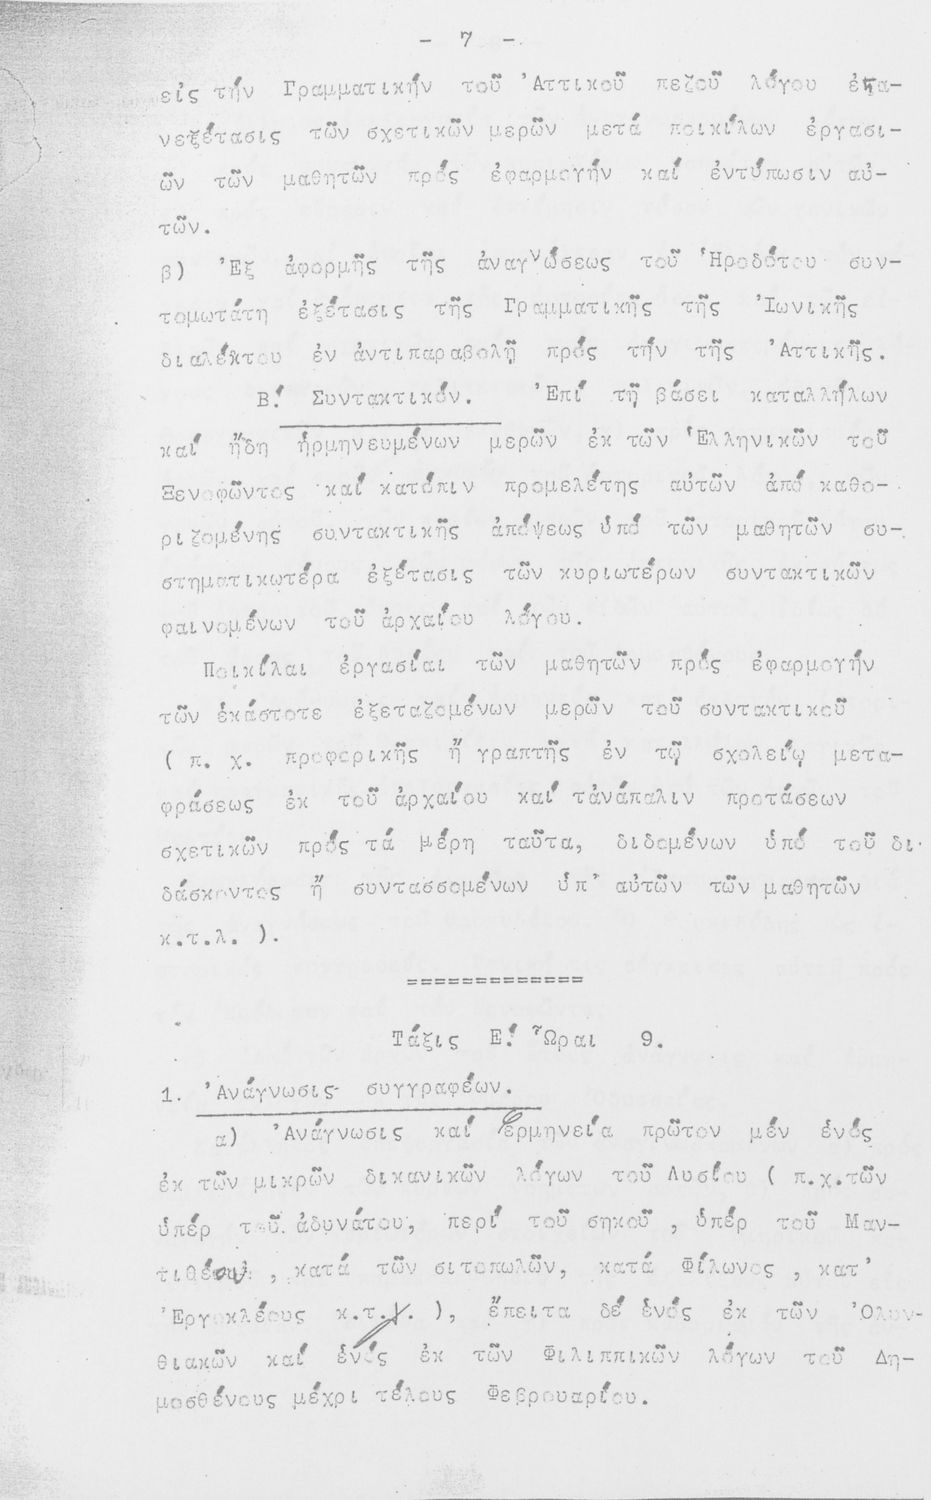 - 7 -
εἰς τήν Γραμματικήν τοῦ Ἀττικοῦ πεζοῦ λόγου ἐπα-
νεξέτασις τῶν σχετικῶν μερῶν μετά ποικίλων ἐργασι-
ῶν τῶν μαθητῶν πρός ἐφαρμογήν καί ἐντύπωσιν αὐ-
τῶν.
β) Ἐξ ἀφορμῆς τῆς ἀναγνώσεως τοῦ Ἡροδότου συν-
τομωτάτη ἐξέτασις τῆς Γραμματικῆς τῆς Ἰωνικῆς
διαλέκτου ἐν ἀντιπαραβολῇ πρός τήν τῆς Ἀττικῆς.
Β΄. Συντακτικόν. Ἐπί τῇ βάσει καταλλήλων
καί ἤδη ἡρμηνευμένων μερῶν ἐκ τῶν Ἑλληνικῶν τοῦ
Ξενοφῶντος καί κατόπιν προμελέτης αὐτῶν ἀπό καθο-
ριζομένης συντακτικῆς ἀπόψεως ὑπό τῶν μαθητῶν συ-
στηματικωτέρα ἐξέτασις τῶν κυριωτέρων συντακτικῶν
φαινομένων τοῦ ἀρχαίου λόγου.
Ποικίλαι ἐργασίαι τῶν μαθητῶν πρός ἐφαρμογήν
τῶν ἑκάστοτε ἐξεταζομένων μερῶν τοῦ συντακτικοῦ
( π. χ. προφορικῆς ἤ γραπτῆς ἐν τῷ σχολείῳ μετα-
φράσεως ἐκ τοῦ ἀρχαίου καί τἀνάπαλιν προτάσεων
σχετικῶν πρός τά μέρη ταῦτα, διδομένων ὑπό τοῦ δι-
δάσκοντος ἤ συντασσομένων ὑπ' αὐτῶν τῶν μαθητῶν
κ.τ.λ. ).
=============
Τάξις Ε΄. Ὧραι 9.
1. Ἀνάγνωσις συγγραφέων.
α) Ἀνάγνωσις καί ἑρμηνεία πρῶτον μέν ἑνός
ἐκ τῶν μικρῶν δικανικῶν λόγων τοῦ Λυσίου ( π.χ.τῶν
ὑπέρ τοῦ ἀδυνάτου, περί τοῦ σηκοῦ , ὑπέρ τοῦ Μαν-
τιθέου , κατά τῶν σιτοπωλῶν, κατά Φίλωνος , κατ'
Ἐργοκλέους κ.τ.λ. ), ἔπειτα δέ ἑνός ἐκ τῶν Ὀλυν-
θιακῶν καί ἑνός ἐκ τῶν Φιλιππικῶν λόγων τοῦ Δη-
μοσθένους μέχρι τέλους Φεβρουαρίου.